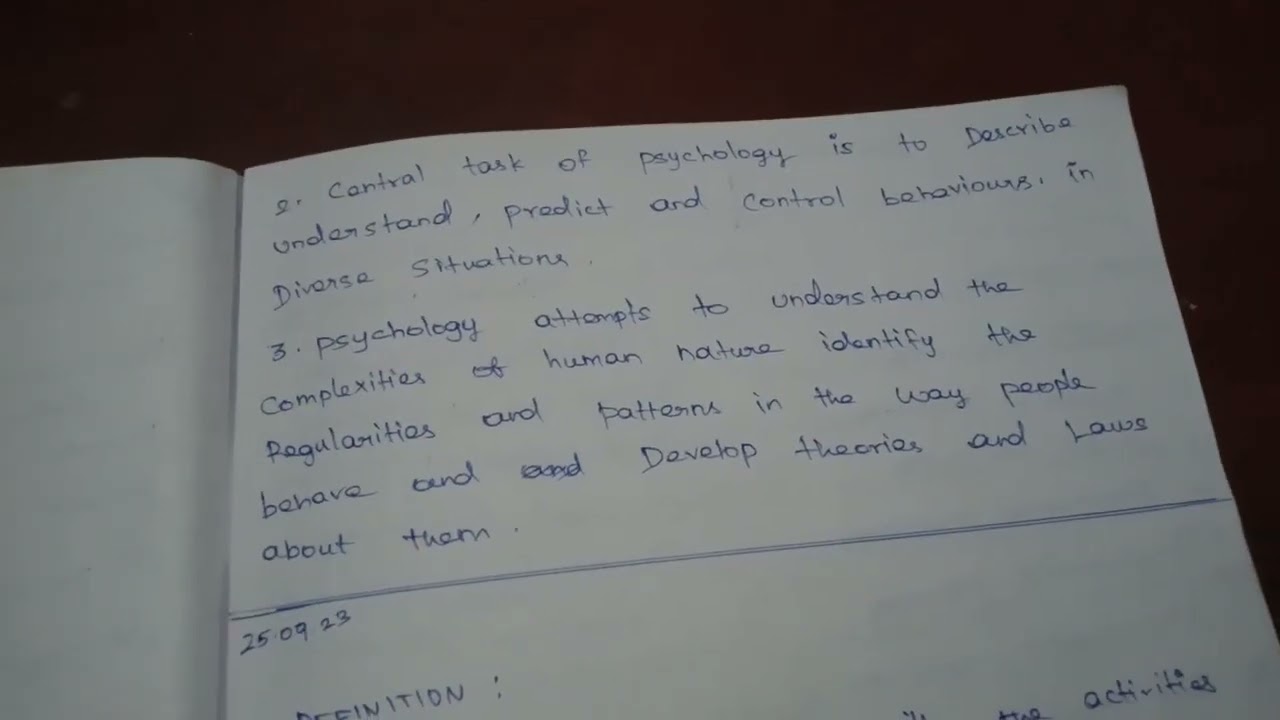 2. Central task of psychology is to Describe
understand, predict and control behaviours. in
Diverse Situations.
3. Psychology attempts to understand the
Complexities of human nature identify the
Regularities and patterns in the way people
behave and and Develop theories and Laws
about them.
25.09.23
DEFINITION :
the activities